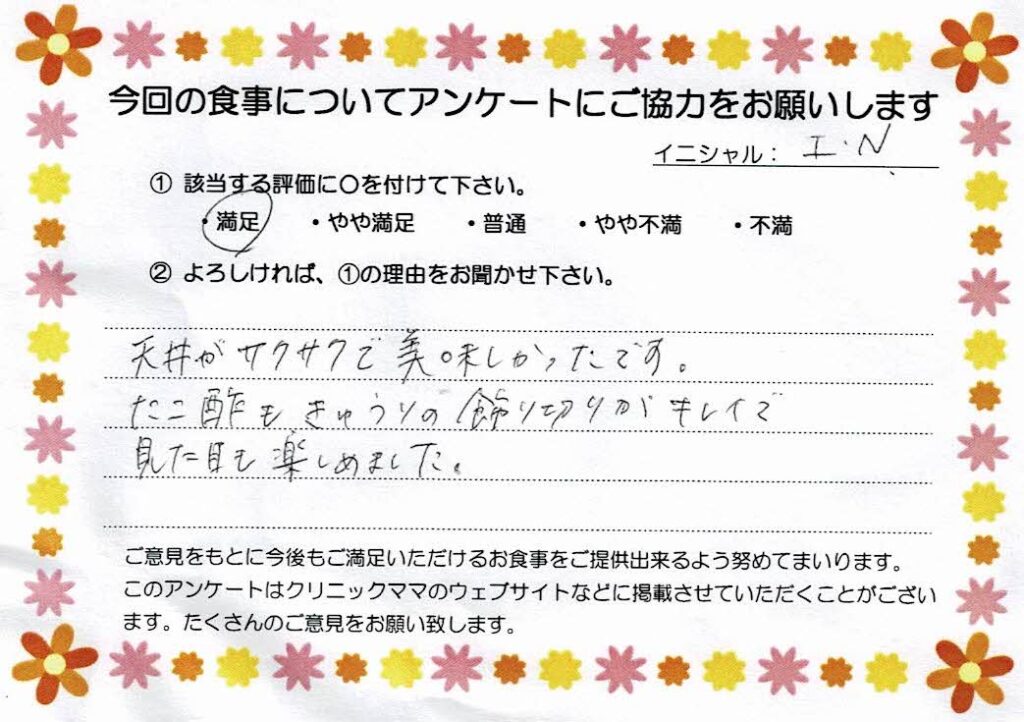 今回の食事についてアンケートにご協力をお願いします
イニシャル： I・N
① 該当する評価に〇を付けて下さい。
・満足 ・やや満足 ・普通 ・やや不満 ・不満
② よろしければ、①の理由をお聞かせ下さい。
天井がサクサクで美味しかったです。
たこ酢もきゅうりの飾り切りがキレイで
見た目も楽しめました。
ご意見をもとに今後もご満足いただけるお食事をご提供出来るよう努めてまいります。
このアンケートはクリニックママのウェブサイトなどに掲載させていただくことがござい
ます。たくさんのご意見をお願い致します。